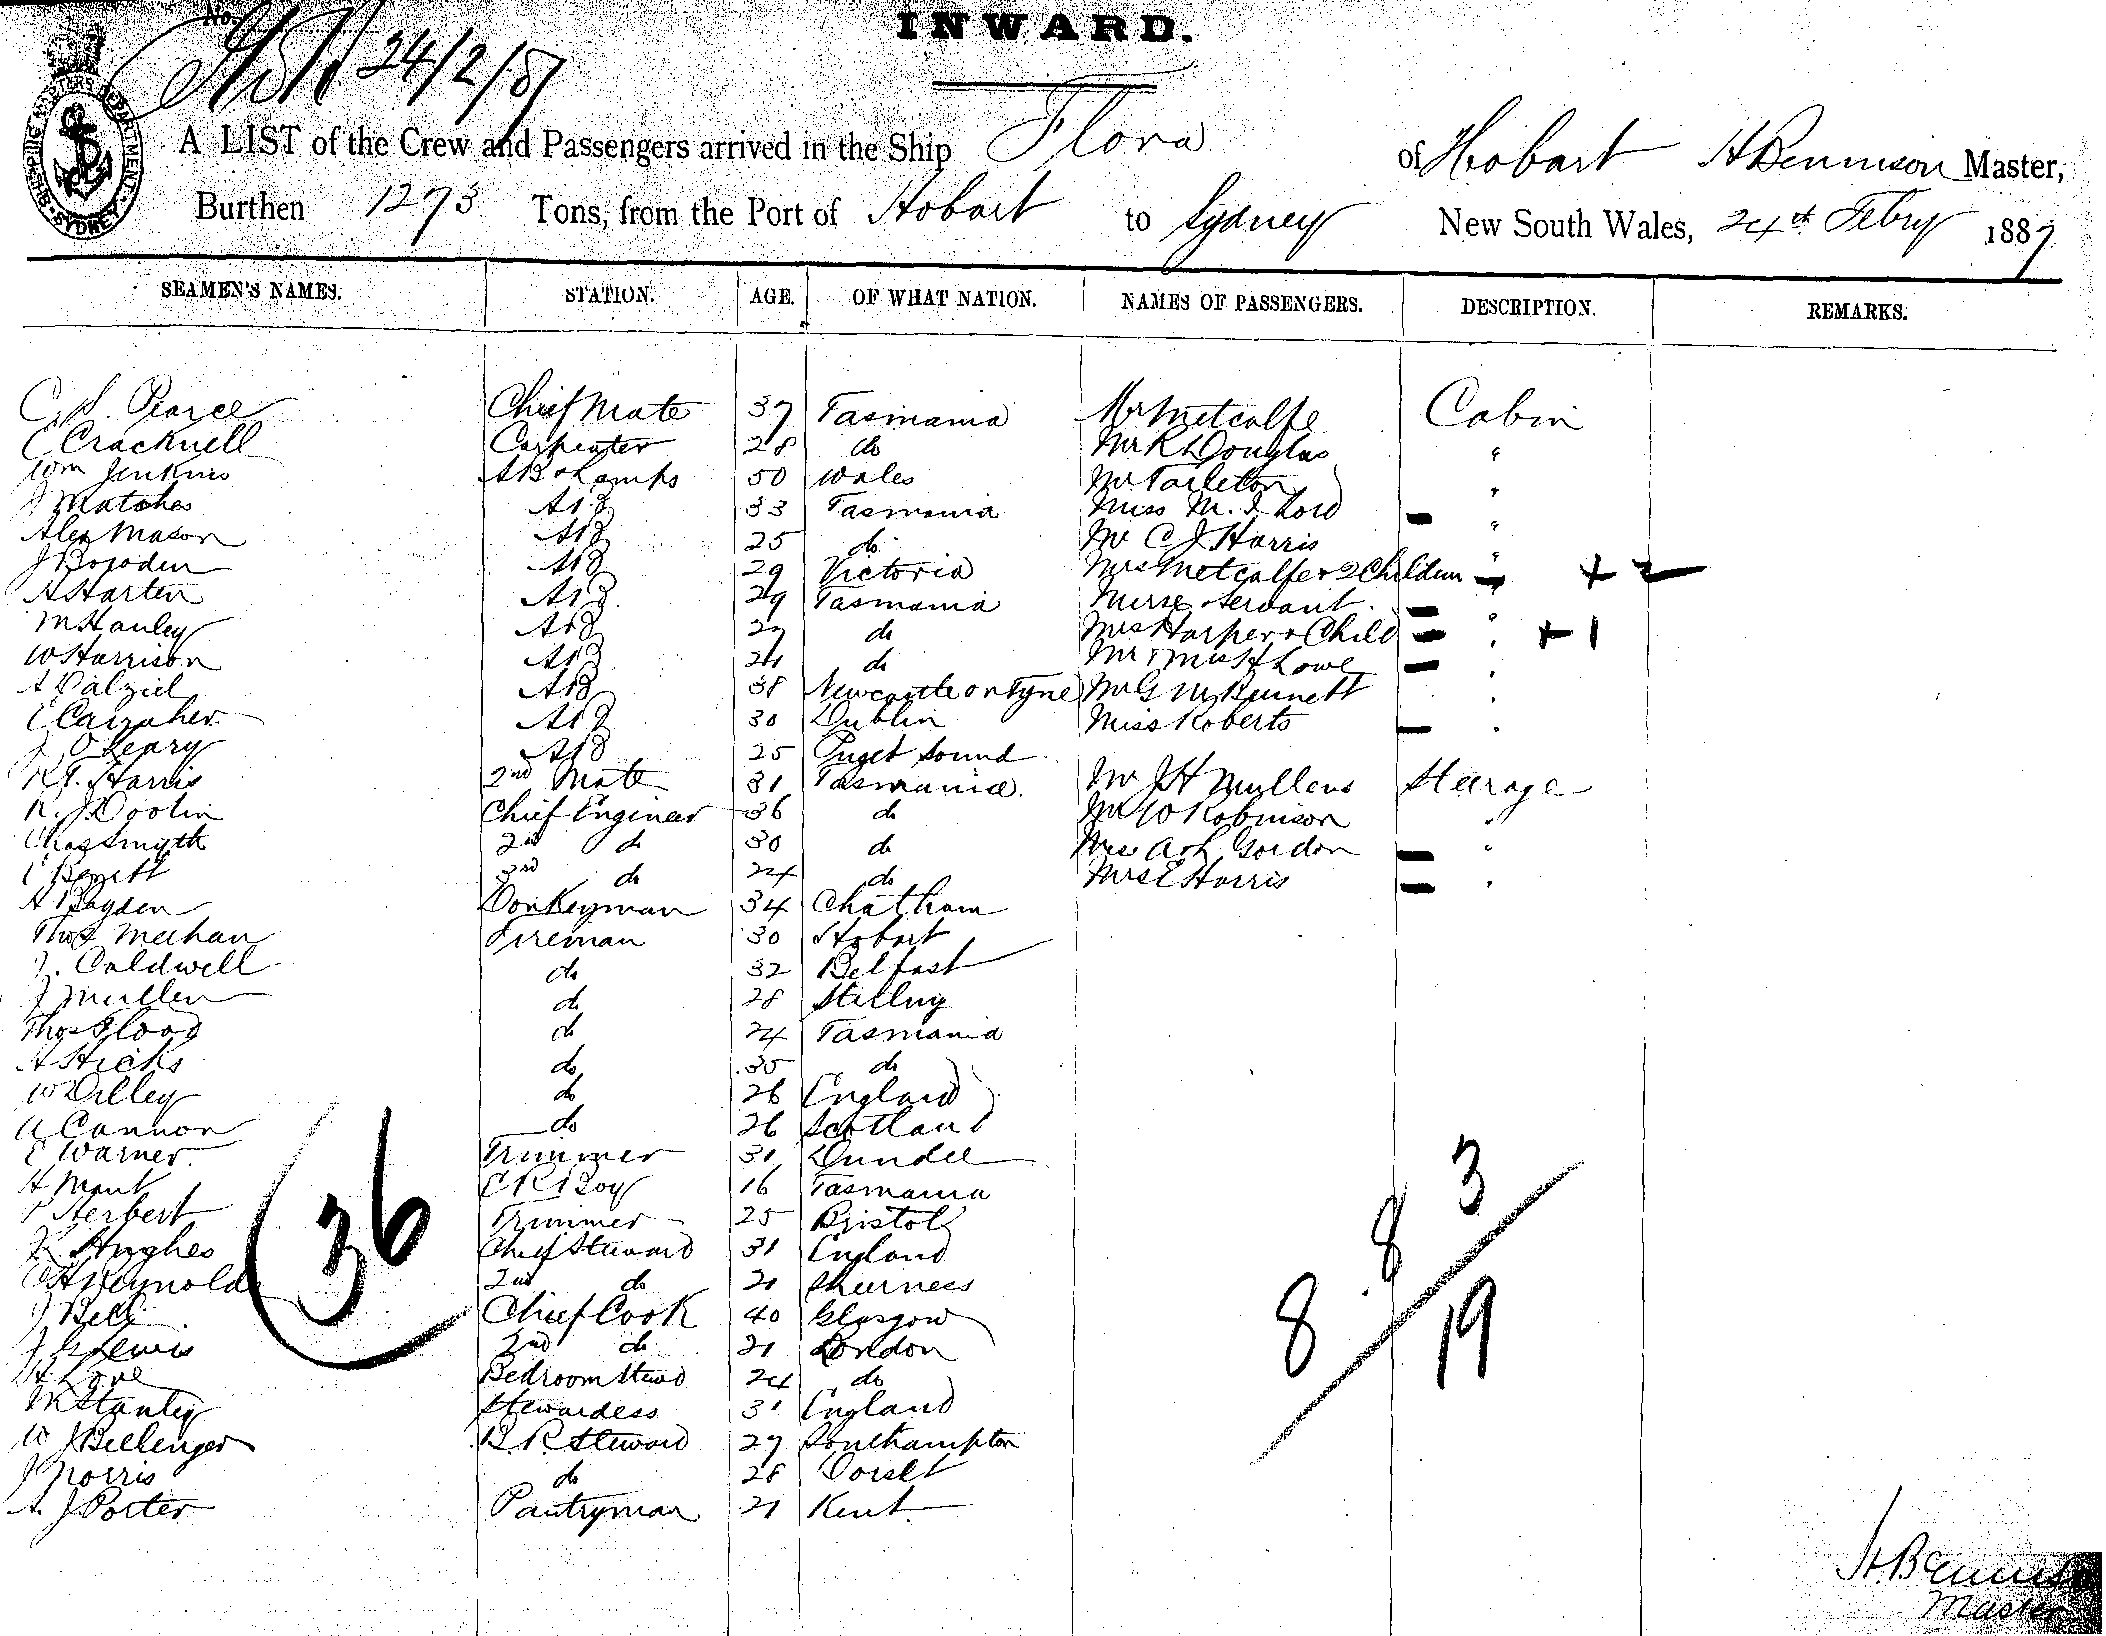 INWARD.
No.
24/2/87
SHIPPING MASTER'S DEPARTMENT
SYDNEY
A LIST of the Crew and Passengers arrived in the Ship Flora of Hobart H Bennison Master,
Burthen 1273 Tons, from the Port of Hobart to Sydney New South Wales, 24th Febry 1887
SEAMEN'S NAMES. STATION. AGE. OF WHAT NATION. NAMES OF PASSENGERS. DESCRIPTION. REMARKS.
C. S. Pearce Chief Mate 37 Tasmania Mr Metcalfe Cabin
C Cracknell Carpenter 28 do Mr R L Douglas "
Wm Jenkins AB & Lamps 50 Wales Mr Tarleton "
J Matches AB 33 Tasmania Miss M. I Lord "
Alex Mason AB 25 do Mr C J Harris "
J Bogoden AB 29 Victoria Mrs Metcalfe & 2 Children " + 2
A Harten AB 29 Tasmania Nurse Servant "
M Hanley AB 27 do Mrs Harper & Child " + 1
W Harrison AB 24 do Mr & Mrs H Lowe "
A Dalziel AB 38 Newcastle on Tyne Mr G M Bennett "
C Carraher AB 30 Dublin Miss Roberts "
J O'Leary AB 25 Puget Sound
R. T. Harris 2nd Mate 31 Tasmania Mr J H Mullens Steerage
R. J. Doolin Chief Engineer 36 do Mr W Robinson "
Chas Smyth 2nd do 30 do Mrs Gordon "
3rd do 24 do Mrs E Harris "
A Bogden Donkeyman 34 Chatham
Thos Meehan Fireman 30 Hobart
J. Caldwell do 32 Belfast
J Mullen do 28 Stirling
Thos Flood do 24 Tasmania
A Hicks do 35 do
W Dilley do 26 England
A Cannon do 26 Scotland
E Warner Trimmer 31 Dundee
A Mant E R Boy 16 Tasmania
P Herbert Trimmer 25 Bristol
R Hughes Chief Steward 31 England
C H Reynolds 2nd do 21 Sheerness
J Bell Chief Cook 40 Glasgow
J G Lewis 2nd do 21 London
H Love Bedroom Stewd 24 do
M Stanley Stewardess 31 England
W J Bellenger B. R. Steward 27 Southampton
J Norris do 28 Dorset
A. J Porter Pantryman 21 Kent
36
8 8 3
19
H. Bennison
Master